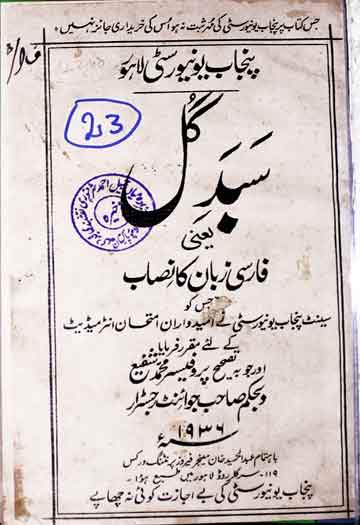 جس کتاب پر پنجاب یونیورسٹی کی مہر ثبت نہ ہو اُس کی خریداری جائز نہیں
پنجاب یونیورسٹی لاہور
23
سَبَدِ گُل
یعنی
فارسی زبان کا نصاب
جس کو
سینٹ پنجاب یونیورسٹی نے امیدواران امتحان انٹرمیڈیٹ
کے لئے مقرر فرمایا
اور جو بہ تصحیح پروفیسر محمد شفیع
و بحکم صاحب جوائنٹ رجسٹرار
سنہ ۱۹۳۶ء
باہتمام عبدالحمید خان منیجر فیروز پرنٹنگ ورکس
۱۱۹- سرکلر روڈ لاہور میں طبع ہوا۔
پنجاب یونیورسٹی کی بے اجازت کوئی نہ چھاپے